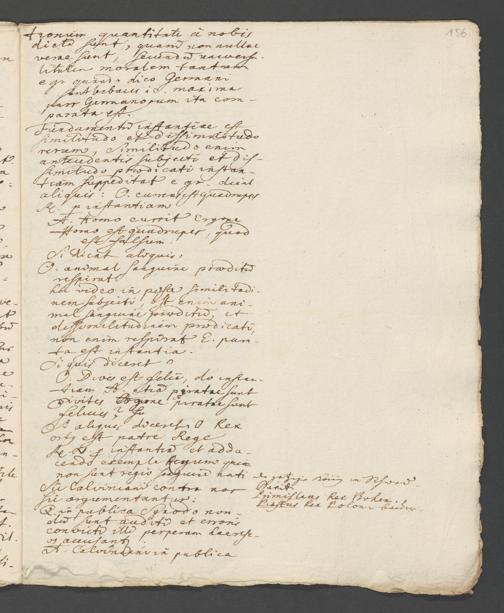 156
quantitate à nobis
dicta sunt, quam non nullae
verae sunt, secundum
moralem tantum
e gr. quando dico Germani
sunt i. e. maxima
pars Germanorum ita com-
parata est.
Fundamentum instantiae est
similitudo et dissimilitudo
rerum, similitudo enim
antecedentis subjecti et dis-
similitudo praedicati instan-
tiam suppeditat e gr. dicat
aliquis: O. currens est quadrupes
per instantiam
A. Homo currit Ergone
Homo est quadrupes, quod
est falsum.
Si dicat aliquis:
O. animal sanguine praeditum
respirat
hic video in similitudi-
nem subjecti, est enim ani-
mal sanguine praeditum, et
dissimilitudinem praedicati,
non enim respirat E.
ta est instantia.
Si quis diceret
O Dives est felix, do instan-
tiam A. etiam piratae sunt
divites Ergone piratae sunt
felices?
Si aliquis diceret O Rex
ortus est patre Rege
per instantiam et addu-
cendo exempla Regum qui
non sunt regio sanguine nati
Sic Calviniani contra nos
sic argumentantur:
publica Synodo non-
dum sunt auditi et erroris
convicti illi perperam haerese-
os accusantur
A. Calviniani in publica
Primislaus Rex Bohem.
Piastus Rex Polon.